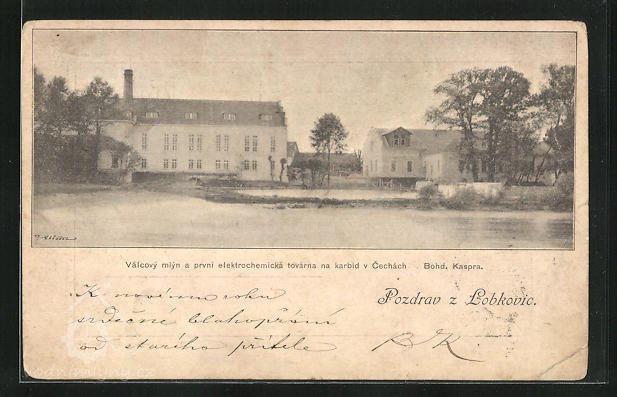 Válcový mlýn a první elektrochemická továrna na karbid v Čechách   Bohd. Kaspra.
Pozdrav z Lobkovic.
K novému roku
srdečné blahopřání
od starího přítele
BK
vodnimlyny.cz